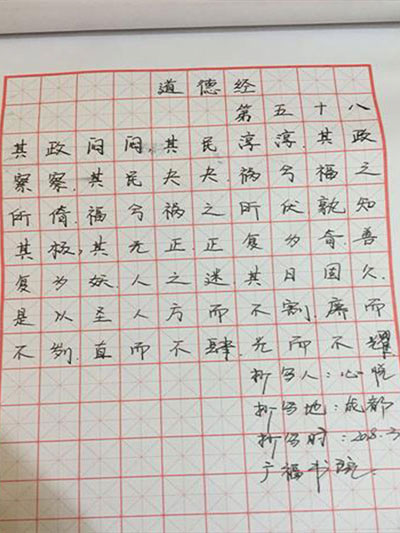 道德经
第五十八
其政闷闷.其民淳淳.其政
察察.其民央央.祸兮福之
所倚.福兮祸之所伏.孰知
其极,其无正.正复为奇.善
复为妖.人之迷.其日固久.
是以圣人方而不割.廉而
不刿.直而不肆.光而不耀.
抄写人:心悦
抄写地:成都
抄写时:2018.3
广福书院.